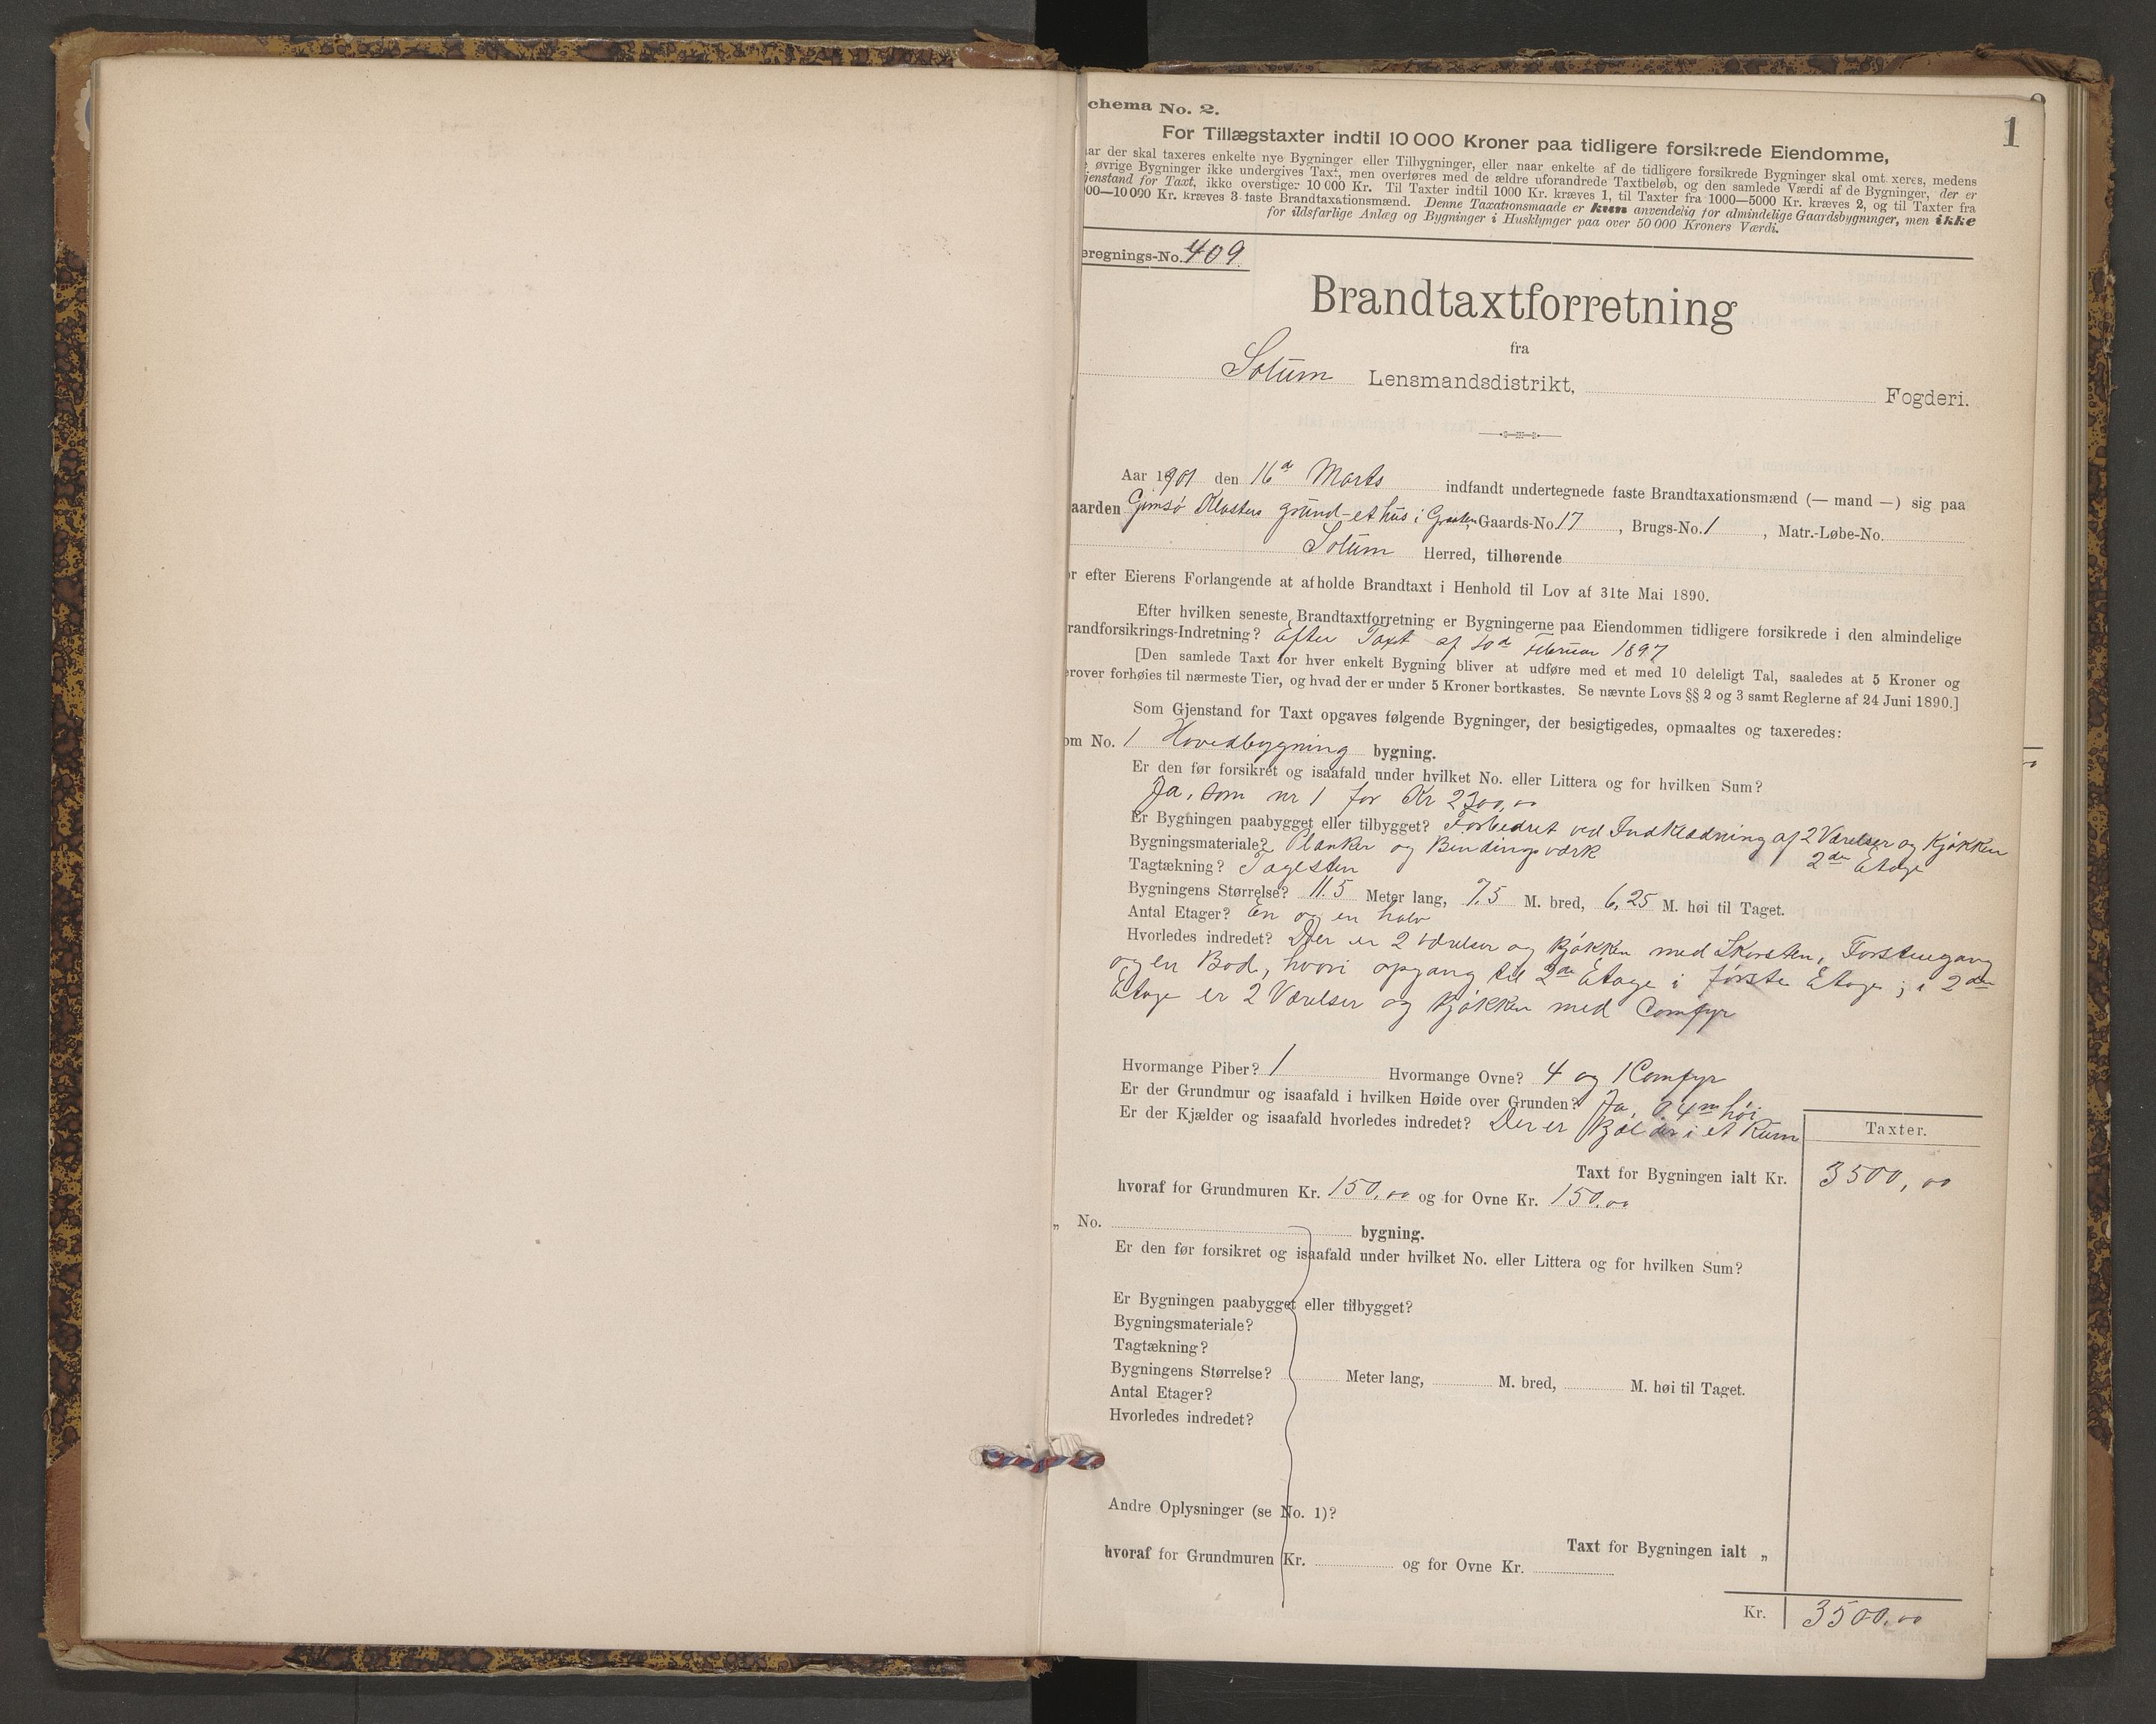 chema No. 2.
1
For Tillægstaxter indtil 10 000 Kroner paa tidligere forsikrede Eiendomme,
ar der skal taxeres enkelte nye Bygninger eller Tilbygninger, eller naar enkelte af de tidligere forsikrede Bygninger skal omt xeres, medens
e øvrige Bygninger ikke undergives Taxt, men overføres med de ældre uforandrede Taxtbeløb, og den samlede Værdi af de Bygninger, der er
jenstand for Taxt, ikke overstiger 10 000 Kr. Til Taxter indtil 1000 Kr. kræves 1, til Taxter fra 1000—5000 Kr. kræves 2, og til Taxter fra
00—10 000 Kr. kræves 3 faste Brandtaxationsmænd. Denne Taxationsmaade er kun anvendelig for almindelige Gaardsbygninger, men ikke
for ildsfarlige Anlæg og Bygninger i Husklynger paa over 50 000 Kroners Værdi.
eregnings-No. 409
Brandtaxtforretning
fra
Solum Lensmandsdistrikt, Fogderi.
Aar 1901 den 16de Marts indfandt undertegnede faste Brandtaxationsmænd (— mand —) sig paa
aarden Gimsø Klosters grund - et hus i Gaards-No 17, Brugs-No. 1, Matr.-Løbe-No.
Solum Herred, tilhørende
or efter Eierens Forlangende at afholde Brandtaxt i Henhold til Lov af 31te Mai 1890.
Efter hvilken seneste Brandtaxtforretning er Bygningerne paa Eiendommen tidligere forsikrede i den almindelige
randforsikrings-Indretning? Efter Taxt af 10de Februar 1897
[Den samlede Taxt for hver enkelt Bygning bliver at udføre med et med 10 deleligt Tal, saaledes at 5 Kroner og
erover forhøies til nærmeste Tier, og hvad der er under 5 Kroner bortkastes. Se nævnte Lovs §§ 2 og 3 samt Reglerne af 24 Juni 1890.]
Som Gjenstand for Taxt opgaves følgende Bygninger, der besigtigedes, opmaaltes og taxeredes:
om No. 1 Hovedbygning bygning.
Er den før forsikret og isaafald under hvilket No. eller Littera og for hvilken Sum?
Ja, som nr 1 for Kr 2300,00
Er Bygningen paabygget eller tilbygget? Forbedret ved Indklædning af 2 Værelser og Kjøkken
Bygningsmateriale? Planker og Bindingsværk 2den Etage
Tagtækning? Taglsten
Bygningens Størrelse? 11.5 Meter lang, 7,5 M. bred, 6,25 M. høi til Taget.
Antal Etager? En og en halv
Hvorledes indredet? Der er 2 værelser og kjøkken med Skorsten, Forstuegang
og en Bod, hvori opgang til 2den Etage i første Etage; i 2den
Etage er 2 Værelser og kjøkken med Comfyr
Hvormange Piber? 1 Hvormange Ovne? 4 og 1 Comfyr
Er der Grundmur og isaafald i hvilken Høide over Grunden? Ja, 0.4 m høi
Er der Kjælder og isaafald hvorledes indredet? Der er kjælder i et Rum
Taxter.
Taxt for Bygningen ialt Kr. 3500,00
hvoraf for Grundmuren Kr. 150,00 og for Ovne Kr. 150,00
„ No. bygning.
Er den før forsikret og isaafald under hvilket No. eller Littera og for hvilken Sum?
Er Bygningen paabygget eller tilbygget?
Bygningsmateriale?
Tagtækning?
Bygningens Størrelse? Meter lang, M. bred, M. høi til Taget.
Antal Etager?
Hvorledes indredet?
Andre Oplysninger (se No. 1)?
Taxt for Bygningen ialt „
hvoraf for Grundmuren Kr. og for Ovne Kr.
Kr. 3500,00